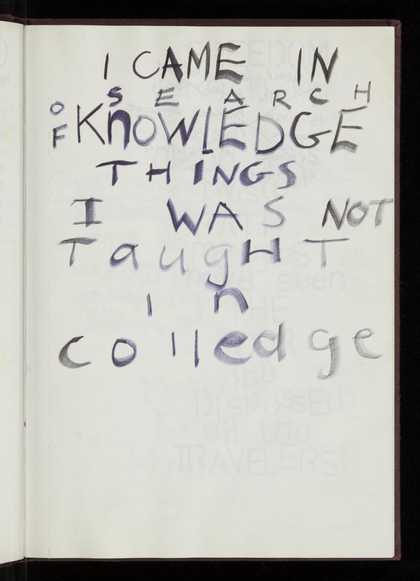 I CAME IN
SEARCH
OF KnOWLEDGE
THINGS
I WAS NOT
TaugHT
in
colledge